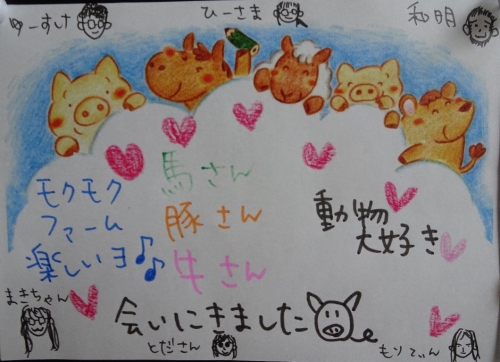 ゆーすけ
ひーさま
和明
モクモク
ファーム
楽しいヨ♪♪
馬さん
豚さん
牛さん
動物
大好き
まきちゃん
会いにきました
とださん